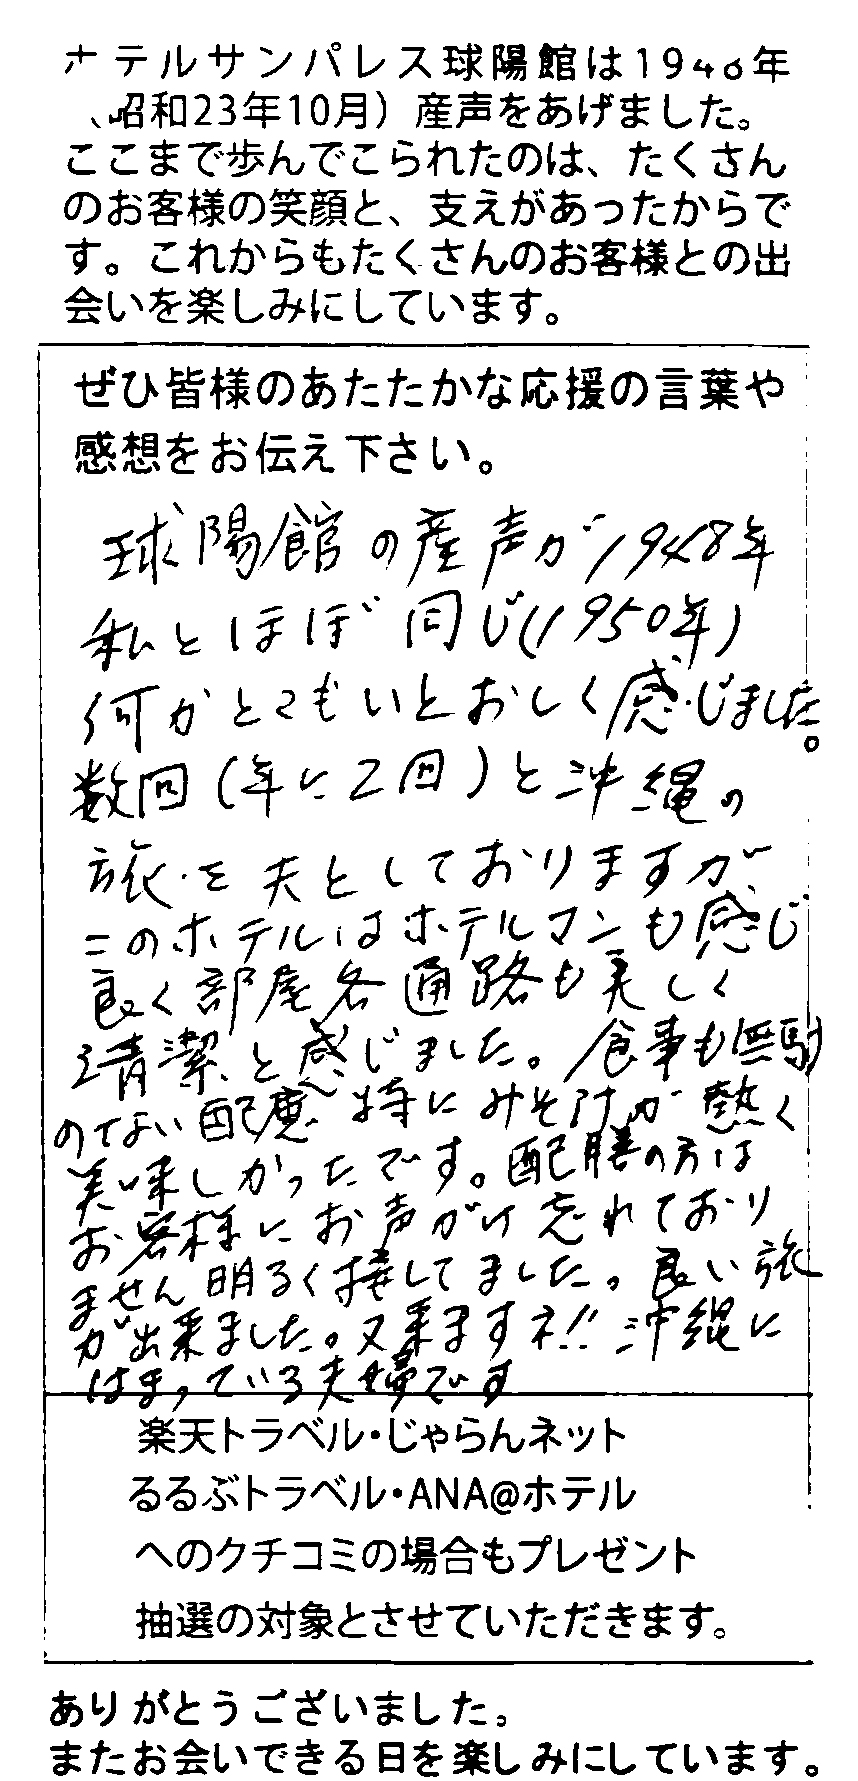 ホテルサンパレス球陽館は1948年
（昭和23年10月）産声をあげました。
ここまで歩んでこられたのは、たくさん
のお客様の笑顔と、支えがあったからで
す。これからもたくさんのお客様との出
会いを楽しみにしています。
ぜひ皆様のあたたかな応援の言葉や
感想をお伝え下さい。
球陽館の産声が1948年
私とほぼ同じ(1950年)
何かとてもいとおしく感じました。
数回(年に2回)と沖縄の
旅を夫としておりますが
このホテルはホテルマンも感じ
良く部屋各通路も美しく
清潔と感じました。食事も無駄
のてない配慮 特にみそ汁が熱く
美味しかったです。配膳の方は
お客様にお声がけ忘れており
ません明るく接してました。良い旅
が出来ました。又来ますネ!! 沖縄に
はまっている夫婦です
楽天トラベル・じゃらんネット
るるぶトラベル・ANA@ホテル
へのクチコミの場合もプレゼント
抽選の対象とさせていただきます。
ありがとうございました。
またお会いできる日を楽しみにしています。